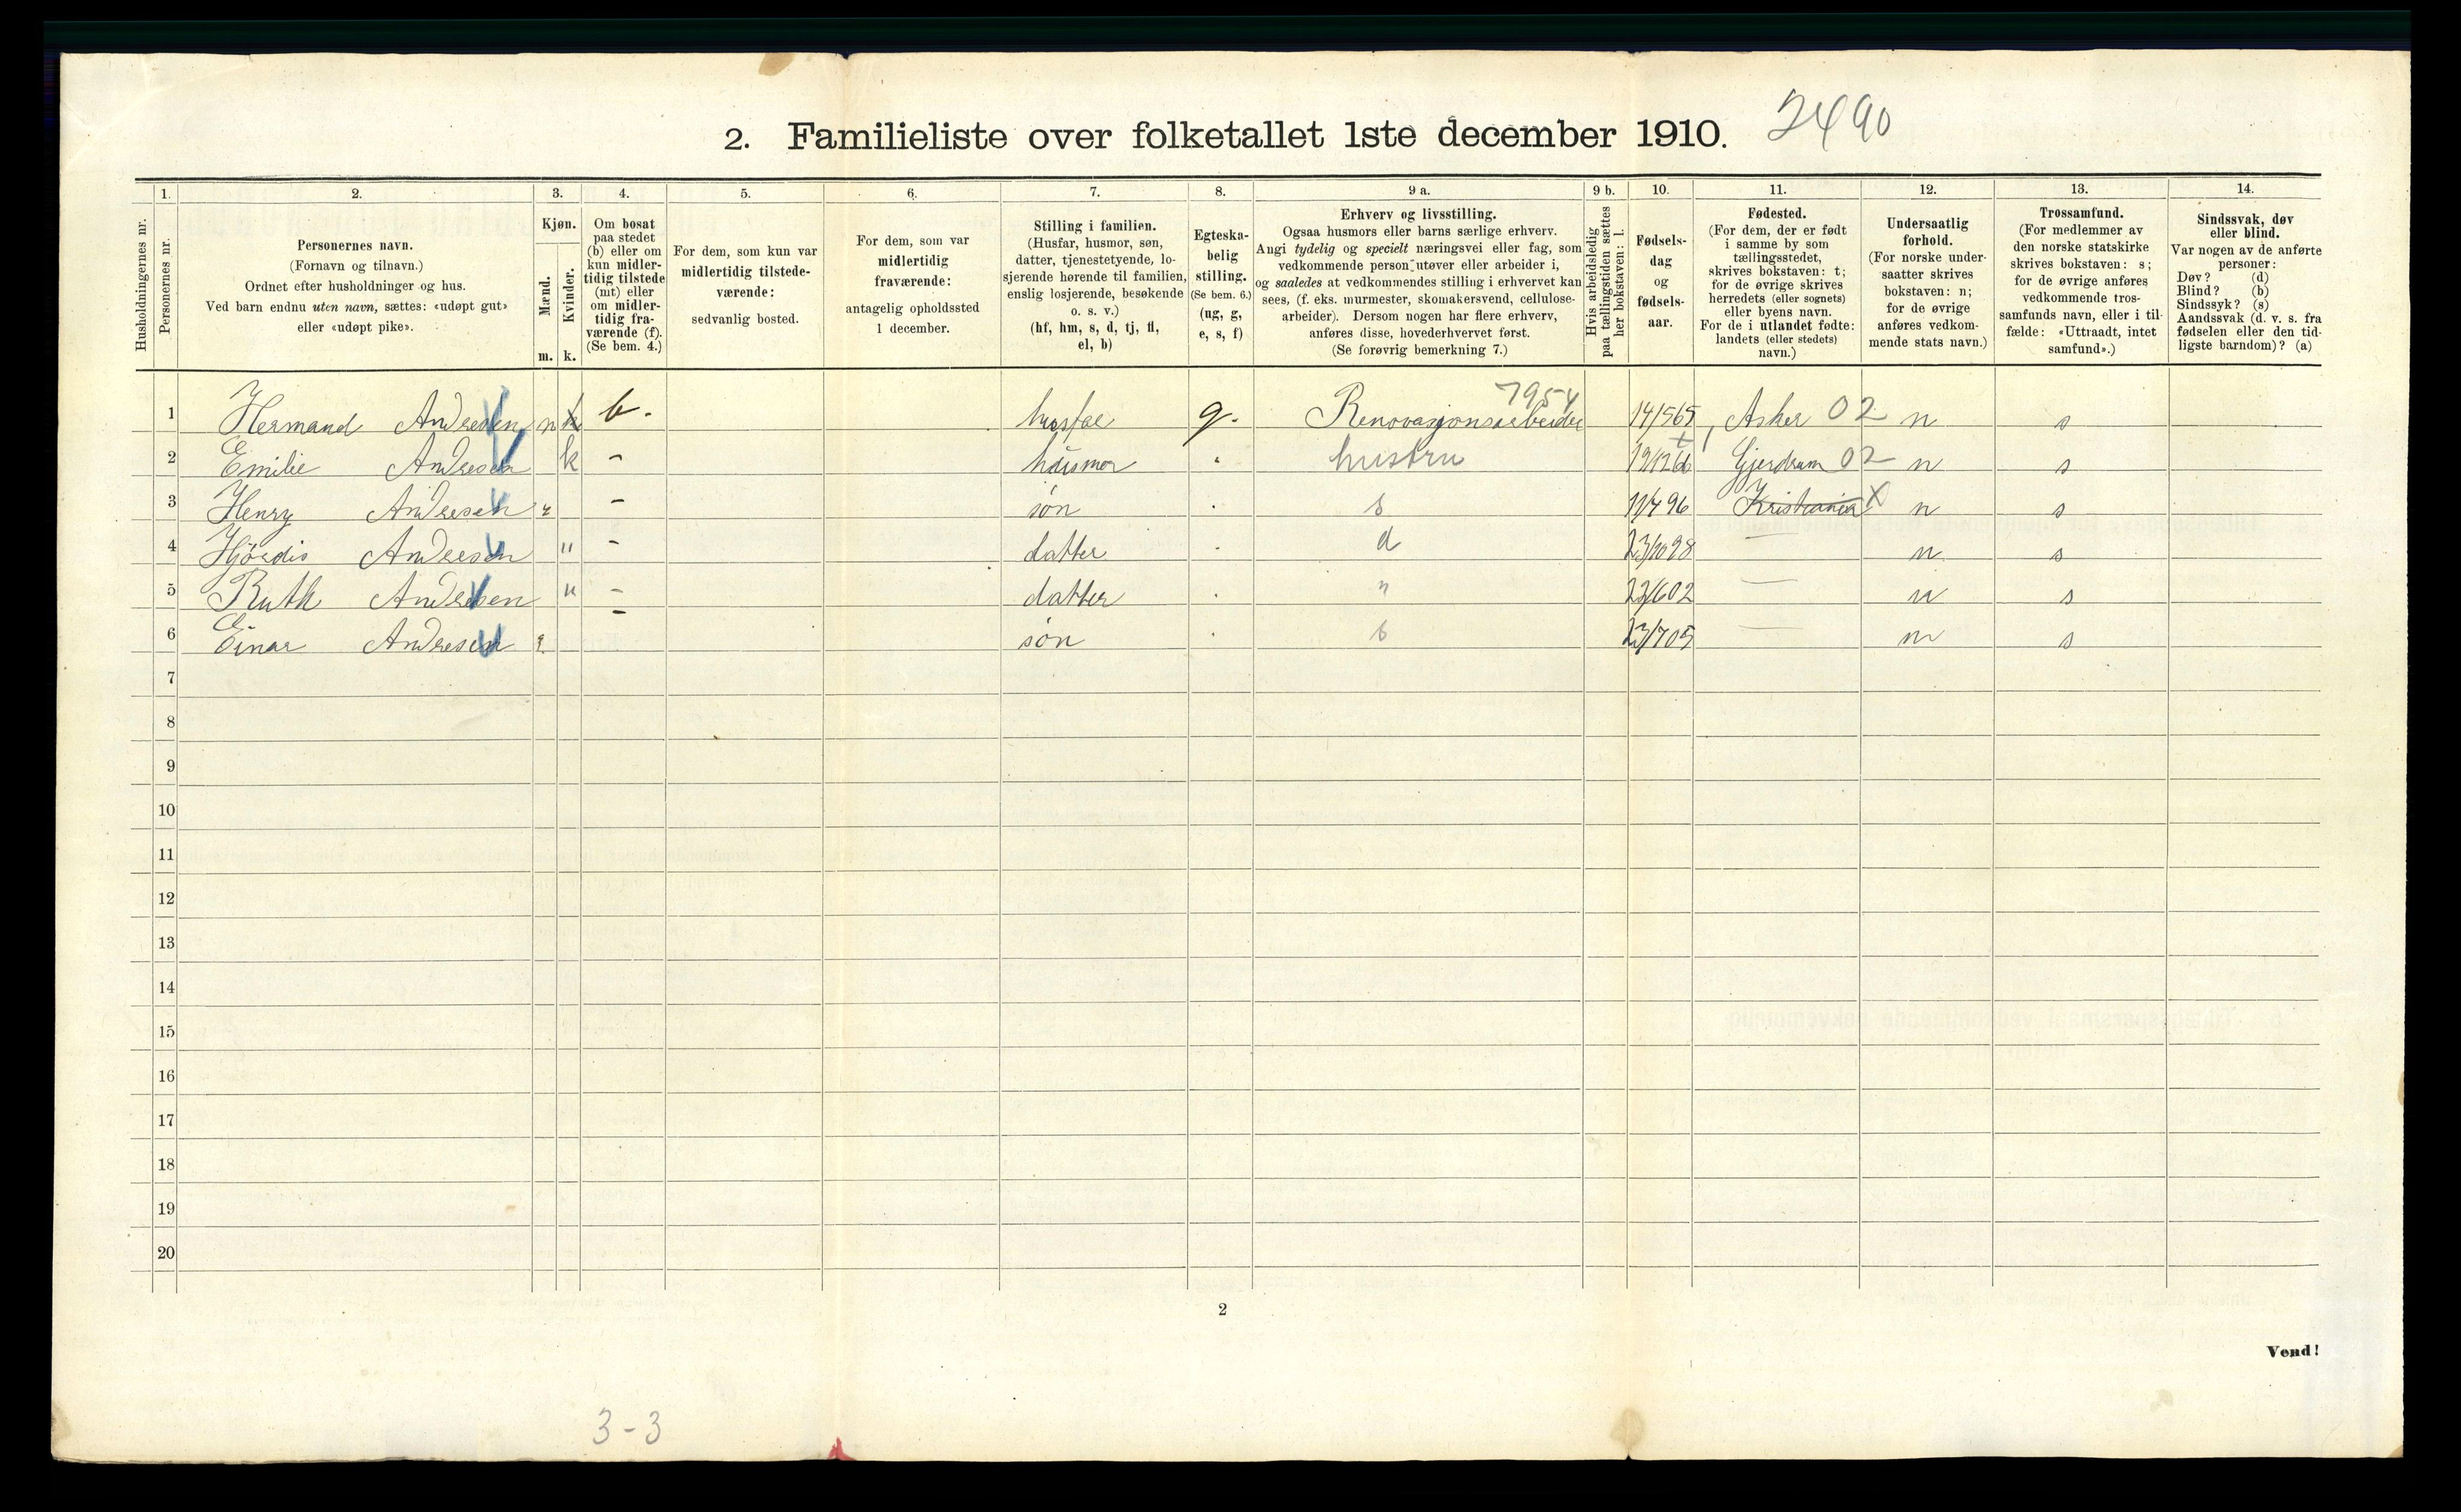 2. Familieliste over folketallet 1ste december 1910. 2490
Husholdningernes nr.
1. Personernes nr.
2. Personernes navn.
(Fornavn og tilnavn.)
Ordnet efter husholdninger og hus.
Ved barn endnu uten navn, sættes: «udøpt gut»
eller «udøpt pike».
3. Kjøn.
Mænd. m.
Kvinder. k.
4. Om bosat
paa stedet
(b) eller om
kun midler-
tidig tilstede
(mt) eller
om midler-
tidig fra-
værende (f).
(Se bem. 4.)
5. For dem, som kun var
midlertidig tilstede-
værende:
sedvanlig bosted.
6. For dem, som var
midlertidig
fraværende:
antagelig opholdssted
1 december.
7. Stilling i familien.
(Husfar, husmor, søn,
datter, tjenestetyende, lo-
sjerende hørende til familien,
enslig losjerende, besøkende
o. s. v.)
(hf, hm, s, d, tj, fl,
el, b)
8. Egteska-
belig
stilling.
(Se bem. 6.)
(ug, g,
e, s, f)
9 a. Erhverv og livsstilling.
Ogsaa husmors eller barns særlige erhverv.
Angi tydelig og specielt næringsvei eller fag, som
vedkommende person utøver eller arbeider i,
og saaledes at vedkommendes stilling i erhvervet kan
sees, (f. eks. murmester, skomakersvend, cellulose-
arbeider). Dersom nogen har flere erhverv,
anføres disse, hovederhvervet først.
(Se forøvrig bemerkning 7.)
9 b. Hvis arbeidsledig
paa tællingstiden sættes
her bokstaven: l.
10. Fødsels-
dag
og
fødsels-
aar.
11. Fødested.
(For dem, der er født
i samme by som
tællingsstedet,
skrives bokstaven: t;
for de øvrige skrives
herredets (eller sognets)
eller byens navn.
For de i utlandet fødte:
landets (eller stedets)
navn.)
12. Undersaatlig
forhold.
(For norske under-
saatter skrives
bokstaven: n;
for de øvrige
anføres vedkom-
mende stats navn.)
13. Trossamfund.
(For medlemmer av
den norske statskirke
skrives bokstaven: s;
for de øvrige anføres
vedkommende tros-
samfunds navn, eller i til-
fælde: «Uttraadt, intet
samfund».)
14. Sindssvak, døv
eller blind.
Var nogen av de anførte
personer:
Døv? (d)
Blind? (b)
Sindssyk? (s)
Aandssvak (d. v. s. fra
fødselen eller den tid-
ligste barndom)? (a)
7954
1 Hermand Andresen m b. husfar g. Renovasjonsarbeider 14/5 65 Asker 02 n s
2 Emilie Andresen k - husmor " hustru 19/12 66 Gjerdrum 02 n s
3 Henry Andresen - søn " s 11/4 96 Kristiania X n s
4 Hjördis Andresen " - datter " d 23/10 98 — n s
5 Ruth Andresen " - datter " " 22/6 02 — n s
6 Einar Andresen - søn " s 23/7 05 — n s
7
8
9
10
11
12
13
14
15
16
17
18
19
20
2
Vend!
3-3